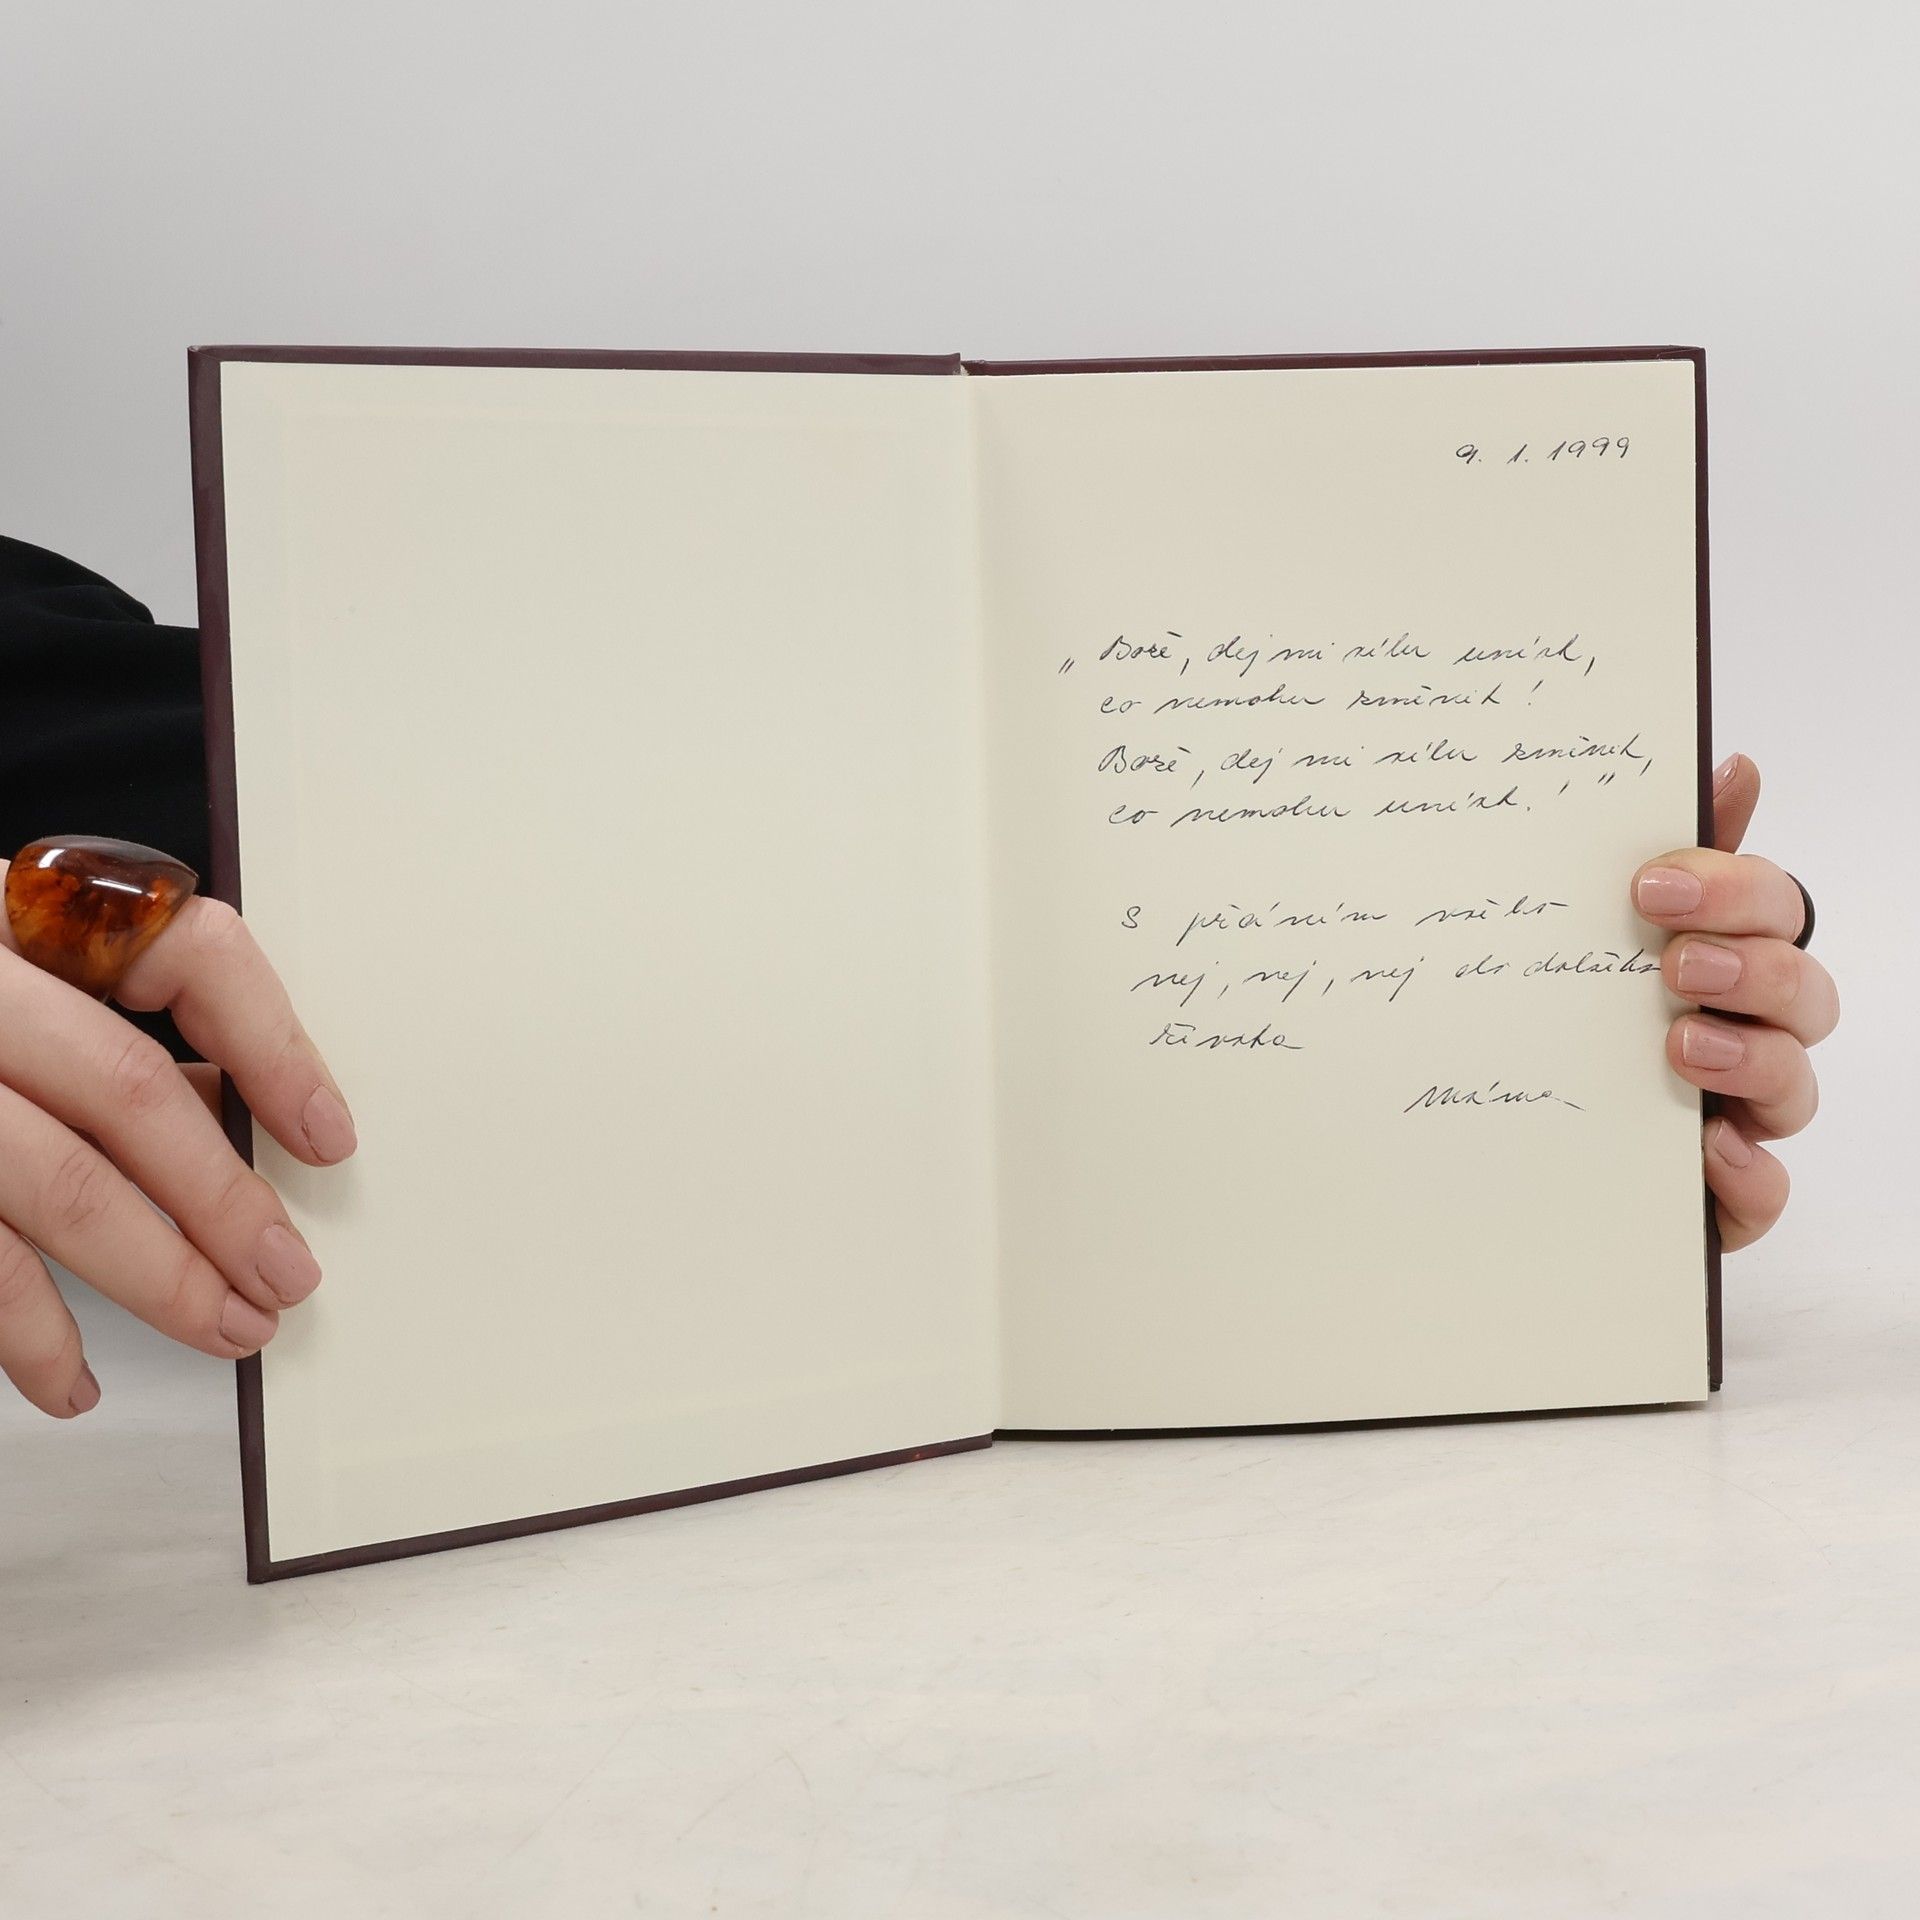 9. 1. 1999
„Bože, dej mi sílu unést,
co nemohu změnit!
Bože, dej mi sílu změnit,
co nemohu unést!"
S přáním všeho
nej, nej, nej do dalšího
života
Máma